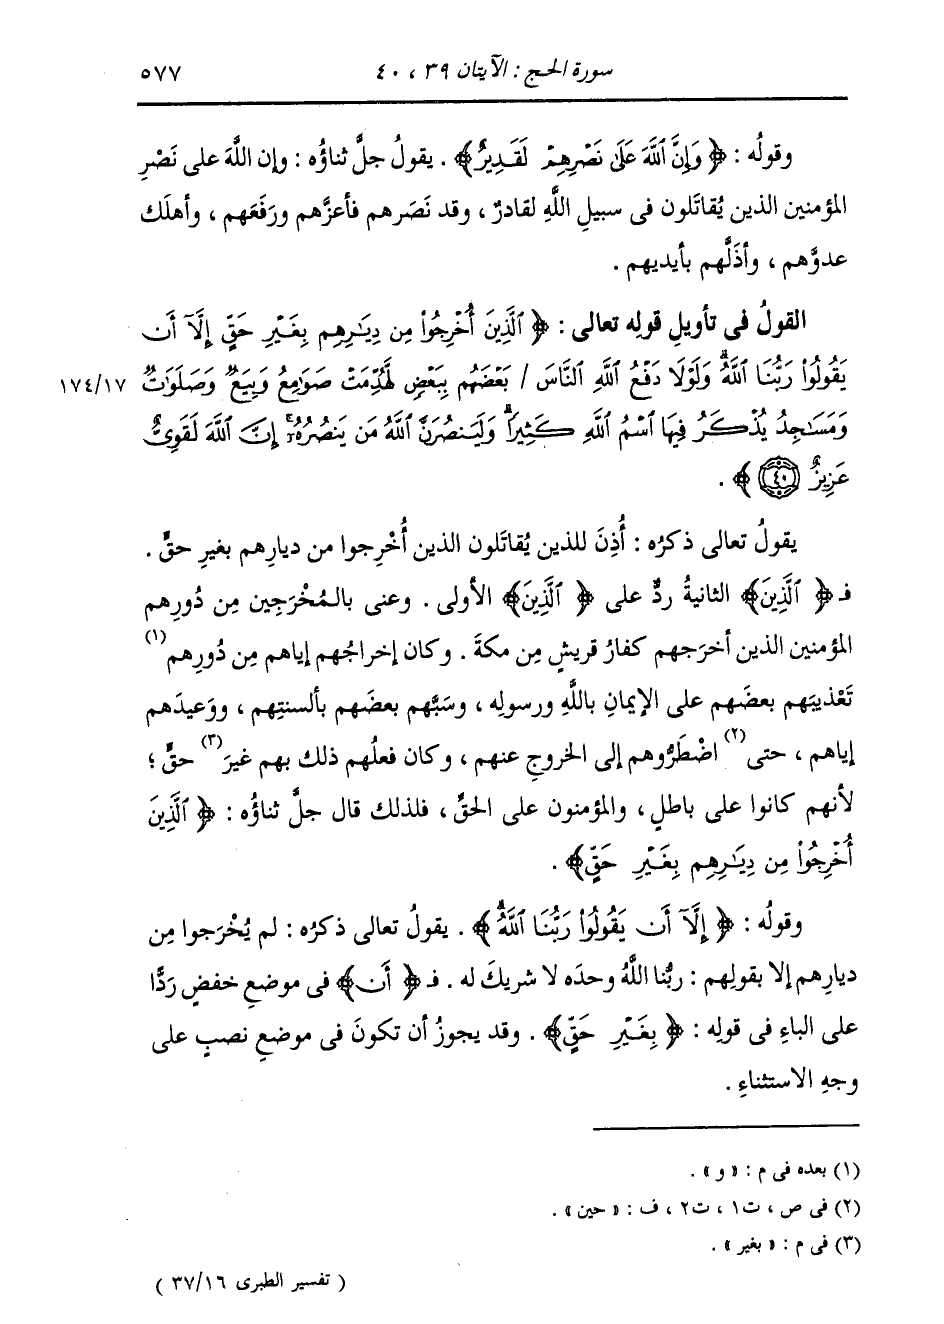 سورة الحج : الآيتان ٣٩ ، ٤٠ ٥٧٧
وقولُه : ﴿ وَإِنَّ ٱللَّهَ عَلَىٰ نَصْرِهِمْ لَقَدِيرٌ﴾ . يقولُ جلَّ ثناؤُه : وإن اللَّهَ على نَصْرِ
المؤمنين الذين يُقاتَلون فى سبيلِ اللَّهِ لقادرٌ ، وقد نَصَرهم فأعزَّهم ورَفَعهم ، وأهلَك
عدوَّهم ، وأذَلَّهم بأيديهم .
القولُ فى تأويلِ قولِه تعالى : ﴿ ٱلَّذِينَ أُخْرِجُوا۟ مِن دِيَـٰرِهِم بِغَيْرِ حَقٍّ إِلَّآ أَن
يَقُولُوا۟ رَبُّنَا ٱللَّهُ ۗ وَلَوْلَا دَفْعُ ٱللَّهِ ٱلنَّاسَ / بَعْضَهُم بِبَعْضٍ لَّهُدِّمَتْ صَوَٰمِعُ وَبِيَعٌ وَصَلَوَٰتٌ ١٧٤/١٧
وَمَسَـٰجِدُ يُذْكَرُ فِيهَا ٱسْمُ ٱللَّهِ كَثِيرًا ۗ وَلَيَنصُرَنَّ ٱللَّهُ مَن يَنصُرُهُۥٓ ۚ إِنَّ ٱللَّهَ لَقَوِىٌّ
عَزِيزٌ ﴿٤٠﴾ ﴾ .
يقولُ تعالى ذكرُه : أُذِنَ للذين يُقاتَلون الذين أُخْرِجوا من ديارِهم بغيرِ حقٍّ .
فـ ﴿ ٱلَّذِينَ﴾ الثانيةُ ردٌّ على ﴿ ٱلَّذِينَ﴾ الأولى . وعنى بالـمُخْرَجِين مِن دُورِهم
المؤمنين الذين أخرَجهم كفارُ قريشٍ مِن مكةَ . وكان إخراجُهم إياهم مِن دُورِهم(١)
تَعْذيبَهم بعضَهم على الإيمانِ باللَّهِ ورسولِه ، وسَبَّهم بعضَهم بألسنتِهم ، ووَعيدَهم
إياهم ، حتى(٢) اضْطَرُّوهم إلى الخروجِ عنهم ، وكان فعلُهم ذلك بهم غيرَ(٣) حقٍّ ؛
لأنهم كانوا على باطلٍ ، والمؤمنون على الحقِّ ، فلذلك قال جلَّ ثناؤُه : ﴿ ٱلَّذِينَ
أُخْرِجُوا۟ مِن دِيَـٰرِهِم بِغَيْرِ حَقٍّ﴾ .
وقولُه : ﴿ إِلَّآ أَن يَقُولُوا۟ رَبُّنَا ٱللَّهُ ۗ﴾ . يقولُ تعالى ذكرُه : لم يُخْرَجوا مِن
ديارِهم إلا بقولِهم : ربُّنا اللَّهُ وحدَه لا شريكَ له . فـ ﴿ أَن﴾ فى موضعِ خفضٍ رَدًّا
على الباءِ فى قولِه : ﴿ بِغَيْرِ حَقٍّ﴾ . وقد يجوزُ أن تكونَ فى موضعِ نصبٍ على
وجهِ الاستثناءِ .
(١) بعده فى م : « و » .
(٢) فى ص ، ت١ ، ت٢ ، ف : « حين » .
(٣) فى م : « بغير » .
( تفسير الطبرى ٣٧/١٦ )